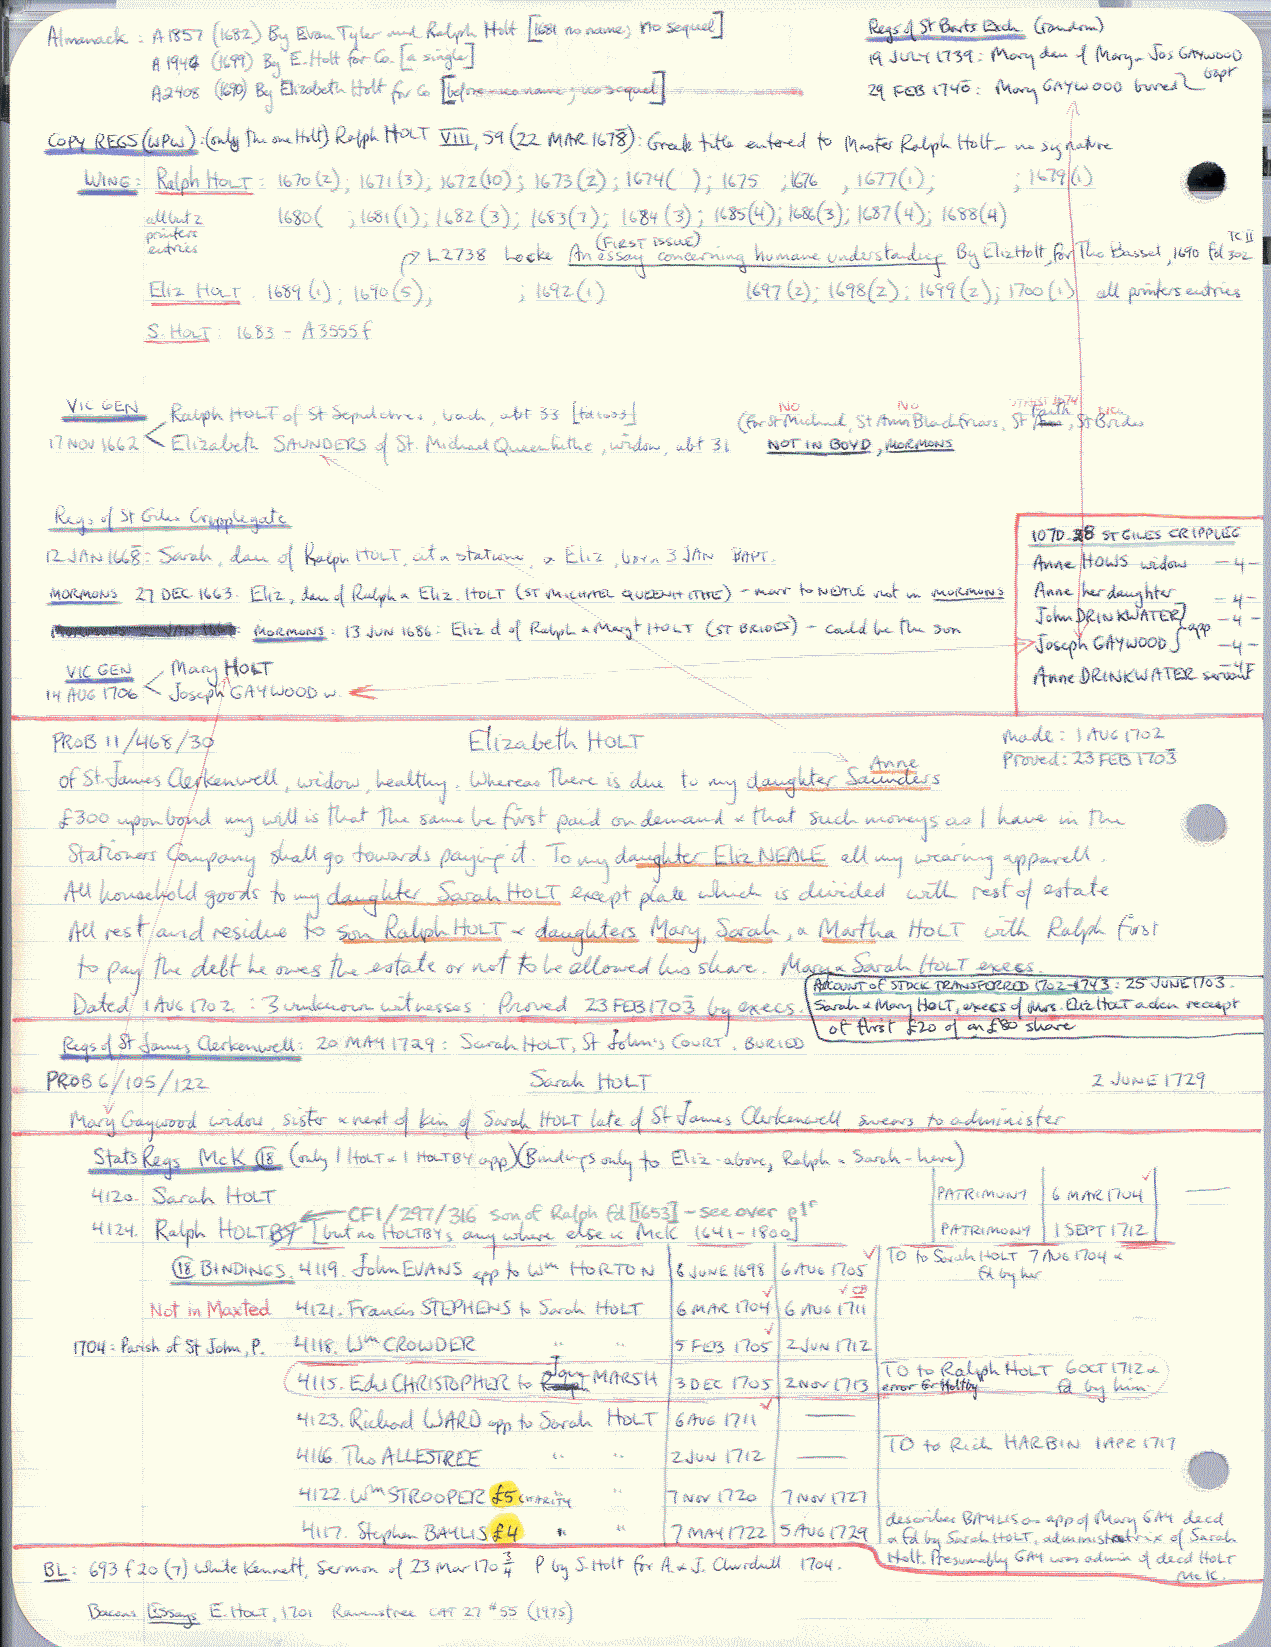 Almanack: A1857 (1682) By Evan Tyler and Ralph Holt [1681 no name, no sequel]
A194 (1699) By E. Holt for Co. [a single]
A2408 (1690) By Elizabeth Holt for Co [before - no name; no sequel]
Regs of St Barts Exch (random)
19 JULY 1739: Mary dau of Mary & Jos GAYWOOD bapt
29 FEB 1740: Mary GAYWOOD buried
COPY REGS (WPW): (only the one Holt) Ralph HOLT VIII, 59 (22 MAR 1678): Greek title entered to Master Ralph Holt - no signature
WING: Ralph HOLT: 1670(2); 1671(3); 1672(10); 1673(2); 1674( ); 1675 ; 1676 , 1677(1); ; 1679(1)
all but 2 printers entries
1680( ; 1681(1); 1682(3); 1683(7); 1684(3); 1685(4); 1686(3); 1687(4); 1688(4)
(FIRST ISSUE) TC II
L2738 Locke An essay concerning humane understanding By Eliz Holt, for Tho Basset, 1690 fd 302
Eliz HOLT. 1689(1); 1690(5); ; 1692(1) 1697(2); 1698(2); 1699(2); 1700(1) all printers entries
S. HOLT: 1683 - A3555f
VIC GEN
17 NOV 1662
Ralph HOLT of St Sepulchres, bach, abt 33
Elizabeth SAUNDERS of St. Michael Queenhithe, widow, abt 31
NO NO
(for St Michael, St Ann Blackfriars, St Faith, St Brides
NOT IN BOYD, MORMONS
Regs of St Giles Cripplegate
12 JAN 1668: Sarah, dau of Ralph HOLT, cit & statione, & Eliz, born 3 JAN BAPT.
MORMONS 27 DEC 1663. Eliz, dau of Ralph & Eliz. HOLT (ST MICHAEL QUEENHITHE) - marr to NEALE not in MORMONS
MORMONS: 13 JUN 1686: Eliz d of Ralph & Margt HOLT (ST BRIDES) - could be the son
VIC GEN
14 AUG 1706
Mary HOLT
Joseph GAYWOOD w.
107D.38 ST GILES CRIPPLEG
Anne HOWS widow -4-
Anne her daughter -4-
John DRINKWATER } app -4-
Joseph GAYWOOD } -4-
Anne DRINKWATER servant -4-
PROB 11/468/30 Elizabeth HOLT made: 1 AUG 1702
Proved: 23 FEB 1703
Anne
of St. James Clerkenwell, widow, healthy. Whereas there is due to my daughter Saunders
£300 upon bond my will is that the same be first paid on demand & that such moneys as I have in the
Stationers Company shall go towards paying it. To my daughter Eliz NEALE all my wearing apparell.
All household goods to my daughter Sarah HOLT except plate which is divided with rest of estate
All rest and residue to son Ralph HOLT & daughters Mary, Sarah, & Martha HOLT with Ralph first
to pay the debt he owes the estate or not to be allowed his share. Mary & Sarah HOLT execs.
Dated 1 AUG 1702: 3 unknown witnesses. Proved 23 FEB 1703 by execs.
ACCOUNT OF STOCK TRANSFERRED 1702-1743: 25 JUNE 1703.
Sarah & Mary HOLT, execs of Mrs. Eliz HOLT acken receipt
of first £20 of an £80 share
Regs of St James Clerkenwell: 20 MAY 1729: Sarah HOLT, St John's COURT. BURIED
PROB 6/105/122 Sarah HOLT 2 JUNE 1729
Mary Gaywood widow sister & next of kin of Sarah HOLT late of St James Clerkenwell swears to administer
Stats Regs McK 18 (only 1 HOLT & 1 HOLTBY app) (Bindings only to Eliz - above, Ralph & Sarah - here)
4120. Sarah HOLT PATRIMONY 6 MAR 1704
CF1/297/316 son of Ralph fd [1653] - see over
4124. Ralph HOLTBY [but no HOLTBYs anywhere else in McK (1641-1800] PATRIMONY 1 SEPT 1712
18 BINDINGS. 4119. John EVANS app to Wm HORTON 6 JUNE 1698 6 AUG 1705 TO to Sarah HOLT 7 AUG 1704 & fd by her
Not in Maxted 4121. Francis STEPHENS to Sarah HOLT 6 MAR 1704 6 AUG 1711
1704: Parish of St John, P. 4118. Wm CROWDER " " 5 FEB 1705 2 JUN 1712
4115. Edw CHRISTOPHER to Jane MARSH 3 DEC 1705 2 NOV 1713 TO to Ralph HOLT 6 OCT 1712 &
error for Holtby fd by him.
4123. Richard WARD app to Sarah HOLT 6 AUG 1711 —
4116. Tho ALLESTREE " " 2 JUN 1712 — TO to Rich HARBIN 1 APR 1717
4122. Wm STROOPER £5 CHARITY " 7 NOV 1720 7 NOV 1727
4117. Stephen BAYLIS £4 " " 7 MAY 1722 5 AUG 1729
describes BAYLIS as app of Mary GAY decd
& fd by Sarah HOLT, administratrix of Sarah
Holt. Presumably GAY was admin of decd HOLT
McK.
BL: 693 f 20 (7) White Kennett, Sermon of 23 Mar 170 3/4 P by S. Holt for A. & J. Churchill 1704.
Bacons Essays E. HOLT, 1701 Ravenstree CAT 27 #55 (1975)